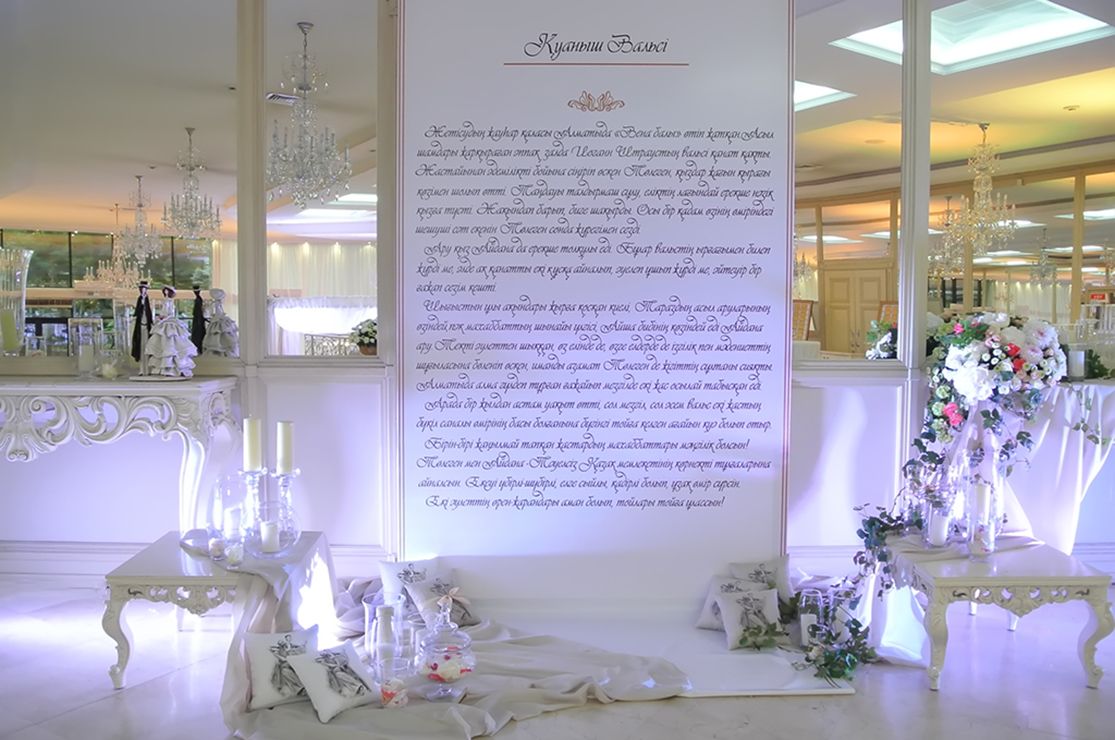 Қуаныш Вальсі
Жетісудың жауһар қаласы Алматыда «Вена балы» өтіп жатқан Асыл
шамдары жарқыраған аппақ залда Иоганн Штраустың вальсі қанат қақты.
Жастайынан әдемілікті бойына сіңіріп өскен Төлеген, қыздар жағын қырағы
көзімен шолып өтті. Таңдауы талдырмаш сұлу, еліктің лағындай ерекше нәзік
қызға түсті. Жақындап барып, биге шақырды. Осы бір қадам өзінің өміріндегі
шешуші сәт екенін Төлеген сонда жүрегімен сезді.
Ару қыз Айдана да ерекше толқып еді. Бұлар вальстің ырғағымен билеп
жүрді ме, әлде ақ қанатты екі құсқа айналып, әуелеп ұшып жүрді ме, әйтеуір бір
ғажап сезім кешті.
Шығыстың ұлы ақындары жырға қосқан киелі, Тараздың асыл аруларының
өзіндей көк махаббаттың шынайы үлгісі, Айша бибінің көзіндей еді Айдана
ару. Текті әулеттен шыққан, өз елінде де, өзге елдерде де ізгілік пен мәдениеттің
шуғыласына бөленіп өскен, иманды азамат Төлеген де жігіттің сұлтаны сияқты.
Алматыда алма гүлдеп тұрған ғажайып мезгілде екі жас осылай табысқан еді.
Арада бір жылдан астам уақыт өтті, сол мезгіл, сол әсем вальс екі жастың
бүкіл саналы өмірінің басы болғанына бүгінгі тойға келген ағайын куә болып отыр.
Бірін-бірі жаңылмай тапқан жастардың махаббаттары мәңгілік болсын!
Төлеген мен Айдана - Тәуелсіз Қазақ мемлекетінің көрнекті тұлғаларына
айналсын. Екеуі үбірлі-шүбірлі, елге сыйлы, қадірлі болып, ұзақ өмір сүрсін.
Екі әулеттің өрен-жарандары аман болып, тойлары тойға ұлассын!